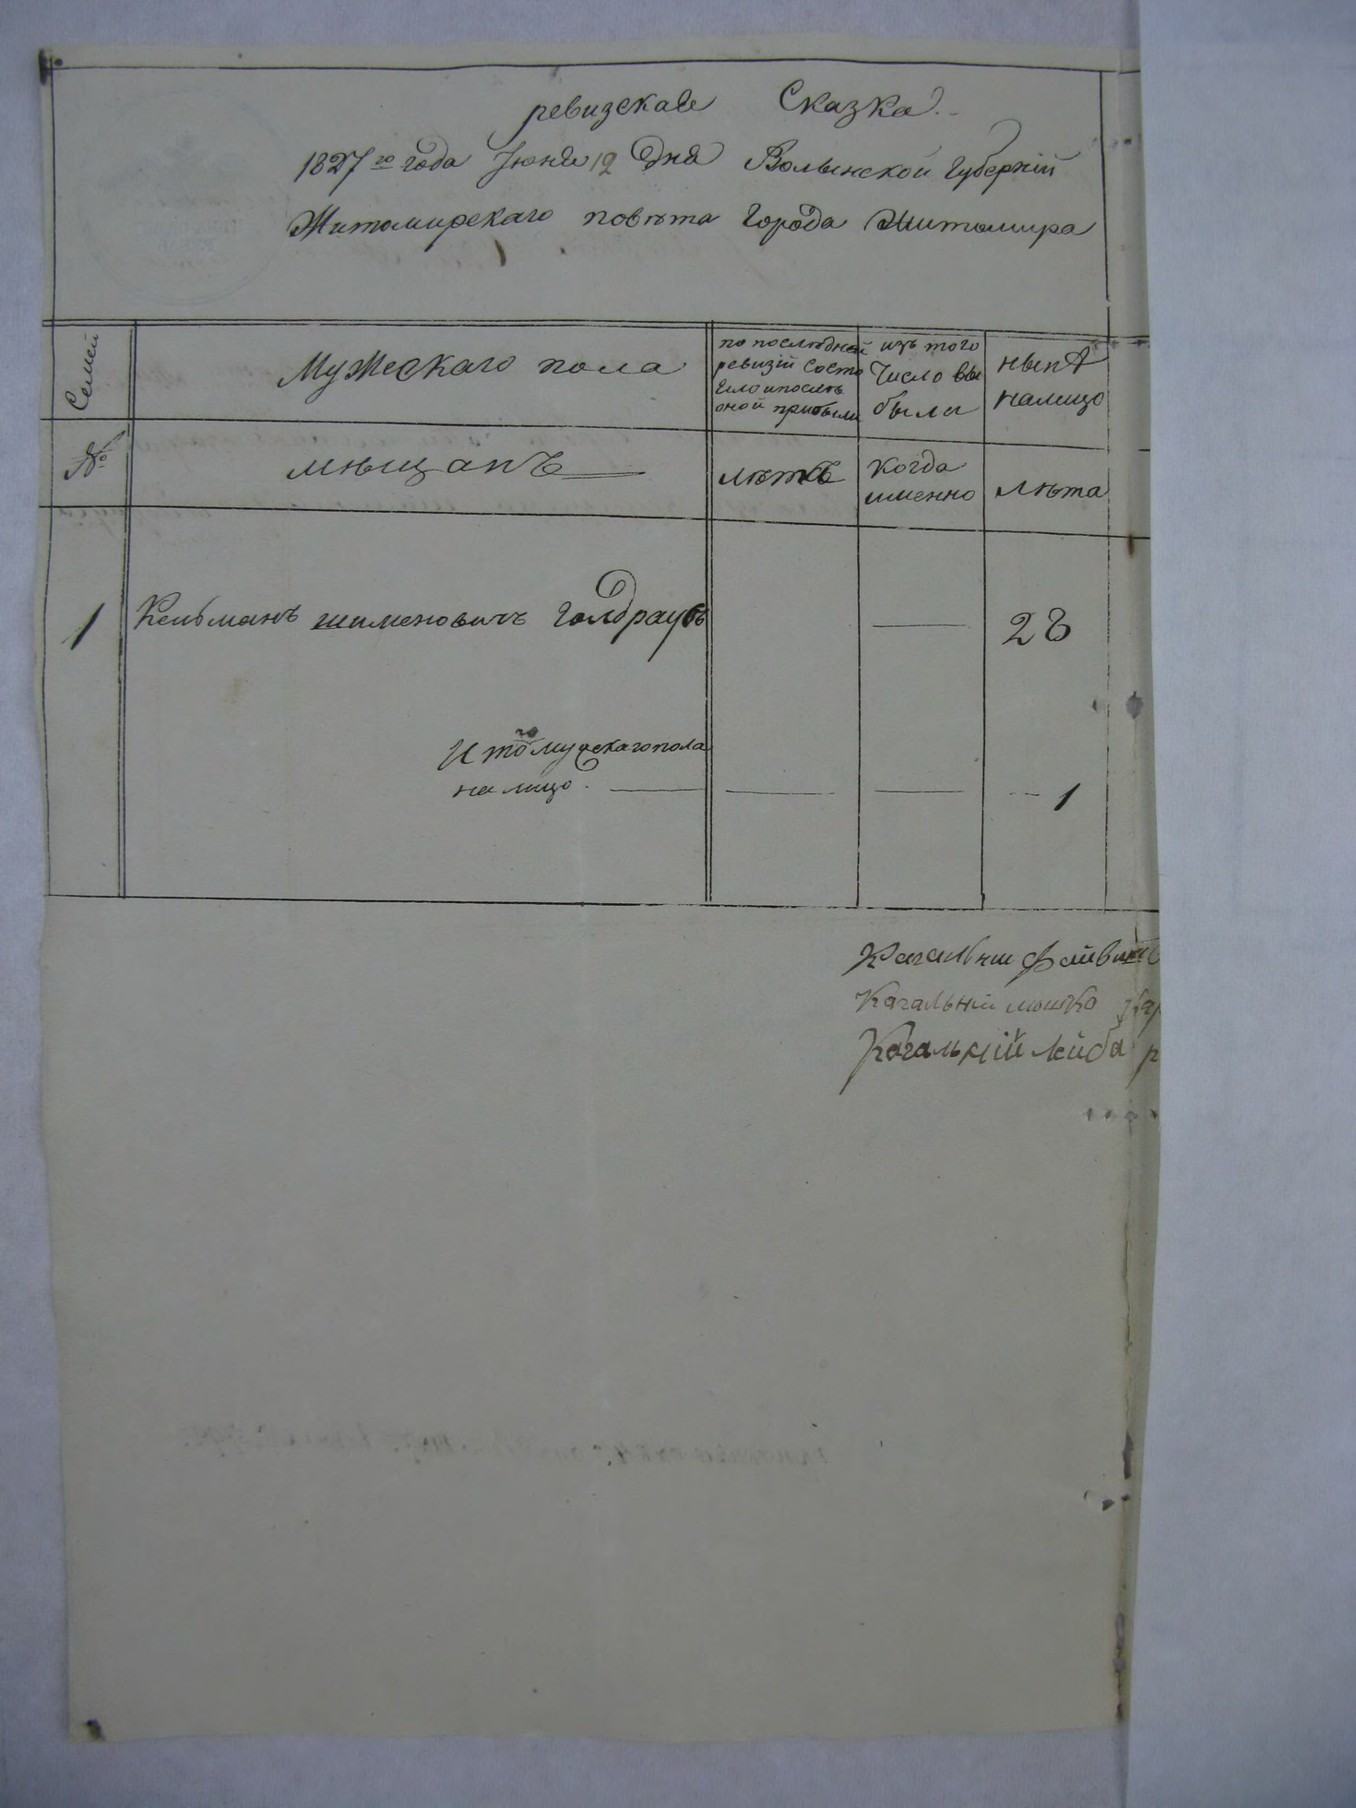 ревизская Сказка
1827го года Июня 12 дня Волынской Губернiи
Житомирскаго повѣта Города Житомира
Семей
Мужескаго пола
по послѣдней
ревизiи состо
яло и послѣ
оной прибыли
изъ того
Число вы
было
нынѣ
налицо
№
мѣщанъ
лѣтъ
когда
именно
лѣта
1 Кельманъ шименовичъ Голдраубъ 28
Итого мужескаго пола
на лицо 1
Кагальны Файвишъ
Кагальнiй мошко
Кагальнiй лейба